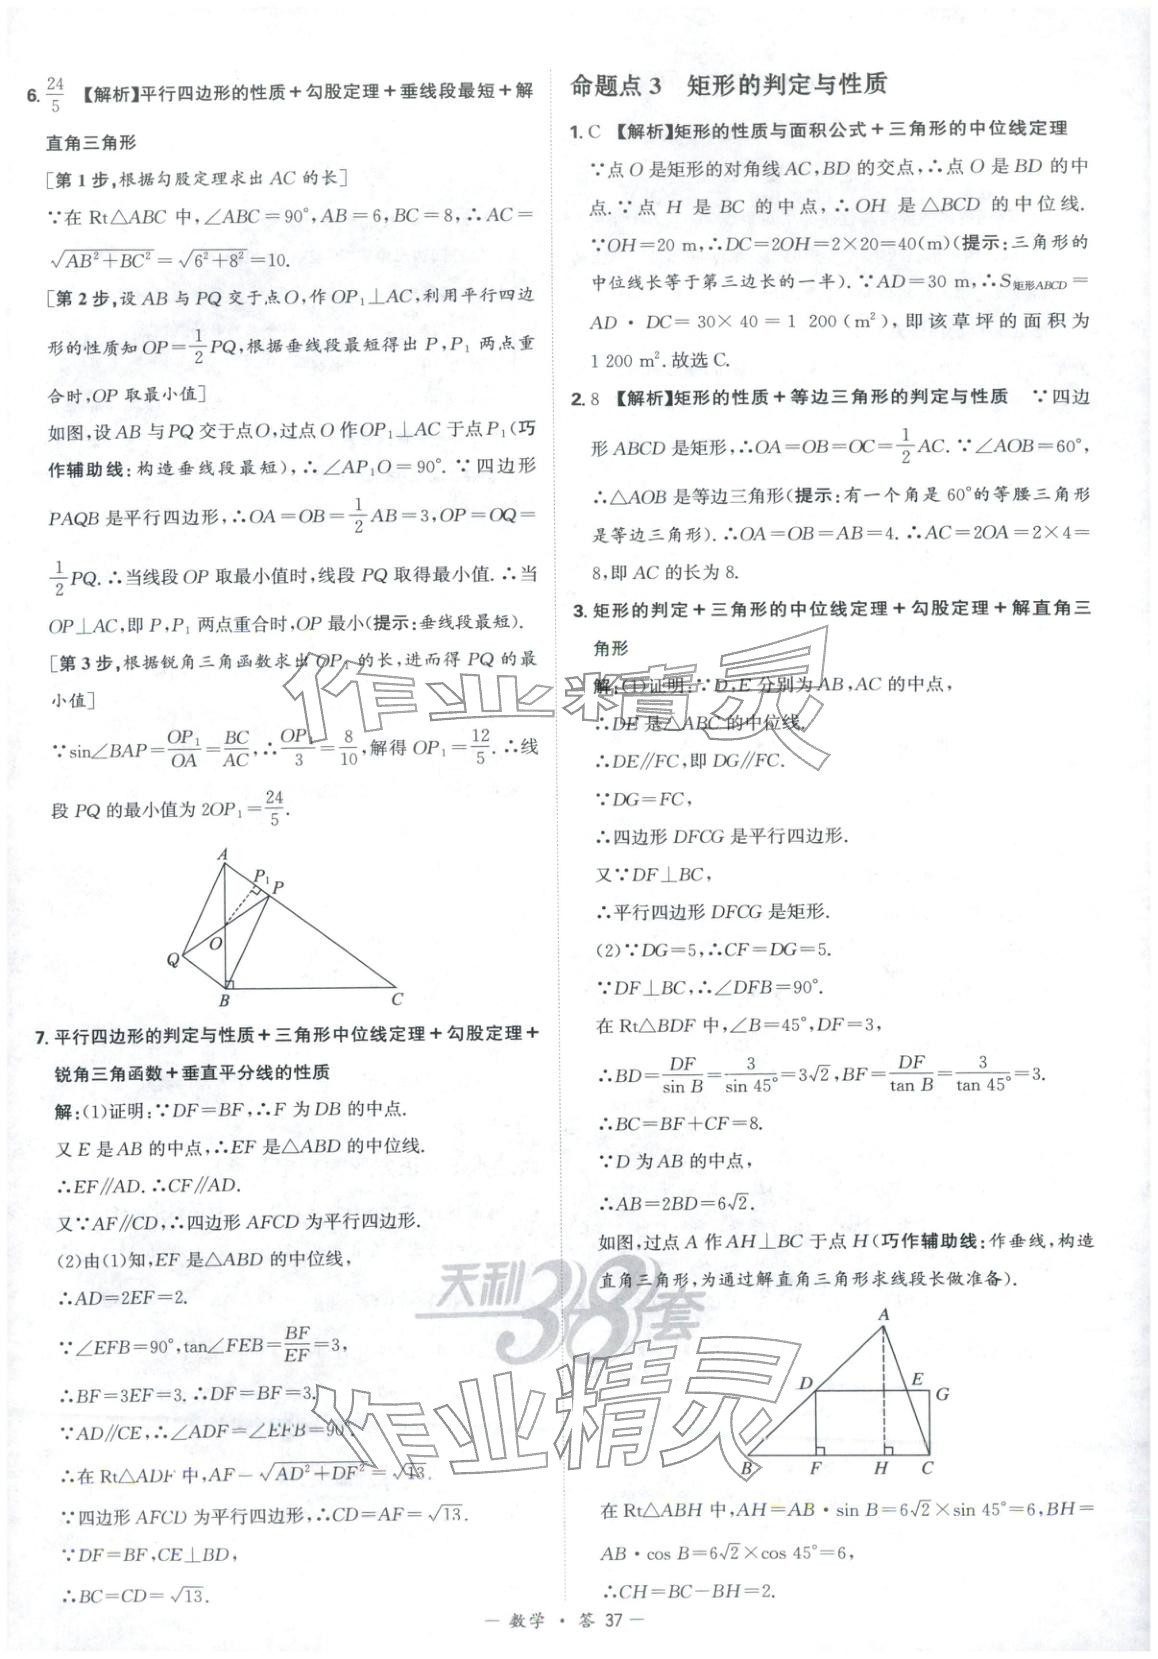 6. 24/5 【解析】平行四边形的性质+勾股定理+垂线段最短+解
直角三角形
[第1步,根据勾股定理求出AC的长]
∵在Rt△ABC中,∠ABC=90°,AB=6,BC=8,∴AC=
√(AB²+BC²)=√(6²+8²)=10.
[第2步,设AB与PQ交于点O,作OP₁⊥AC,利用平行四边
形的性质知OP=1/2PQ,根据垂线段最短得出P,P₁两点重
合时,OP取最小值]
如图,设AB与PQ交于点O,过点O作OP₁⊥AC于点P₁(巧
作辅助线:构造垂线段最短),∴∠AP₁O=90°.∵四边形
PAQB是平行四边形,∴OA=OB=1/2AB=3,OP=OQ=
1/2PQ.∴当线段OP取最小值时,线段PQ取得最小值.∴当
OP⊥AC,即P,P₁两点重合时,OP最小(提示:垂线段最短).
[第3步,根据锐角三角函数求出OP₁的长,进而得PQ的最
小值]
∵sin∠BAP=OP₁/OA=BC/AC,∴OP₁/3=8/10,解得OP₁=12/5.∴线
段PQ的最小值为2OP₁=24/5.
A
P₁
P
O
Q
B
C
7. 平行四边形的判定与性质+三角形中位线定理+勾股定理+
锐角三角函数+垂直平分线的性质
解:(1)证明:∵DF=BF,∴F为DB的中点.
又E是AB的中点,∴EF是△ABD的中位线.
∴EF∥AD.∴CF∥AD.
又∵AF∥CD,∴四边形AFCD为平行四边形.
(2)由(1)知,EF是△ABD的中位线,
∴AD=2EF=2.
∵∠EFB=90°,tan∠FEB=BF/EF=3,
∴BF=3EF=3.∴DF=BF=3.
∵AD∥CE,∴∠ADF=∠EFB=90°.
∴在Rt△ADF中,AF=√(AD²+DF²)=√13.
∵四边形AFCD为平行四边形,∴CD=AF=√13.
∵DF=BF,CE⊥BD,
∴BC=CD=√13.
命题点3 矩形的判定与性质
1. C 【解析】矩形的性质与面积公式+三角形的中位线定理
∵点O是矩形的对角线AC,BD的交点,∴点O是BD的中
点.∵点H是BC的中点,∴OH是△BCD的中位线.
∵OH=20 m,∴DC=2OH=2×20=40(m)(提示:三角形的
中位线长等于第三边长的一半).∵AD=30 m,∴S矩形ABCD=
AD·DC=30×40=1 200(m²),即该草坪的面积为
1 200 m².故选C.
2. 8 【解析】矩形的性质+等边三角形的判定与性质 ∵四边
形ABCD是矩形,∴OA=OB=OC=1/2AC.∵∠AOB=60°,
∴△AOB是等边三角形(提示:有一个角是60°的等腰三角形
是等边三角形).∴OA=OB=AB=4.∴AC=2OA=2×4=
8,即AC的长为8.
3. 矩形的判定+三角形的中位线定理+勾股定理+解直角三
角形
解:(1)证明:∵D,E分别为AB,AC的中点,
∴DE是△ABC的中位线.
∴DE∥FC,即DG∥FC.
∵DG=FC,
∴四边形DFCG是平行四边形.
又∵DF⊥BC,
∴平行四边形DFCG是矩形.
(2)∵DG=5,∴CF=DG=5.
∵DF⊥BC,∴∠DFB=90°.
在Rt△BDF中,∠B=45°,DF=3,
∴BD=DF/sin B=3/sin 45°=3√2,BF=DF/tan B=3/tan 45°=3.
∴BC=BF+CF=8.
∵D为AB的中点,
∴AB=2BD=6√2.
如图,过点A作AH⊥BC于点H(巧作辅助线:作垂线,构造
直角三角形,为通过解直角三角形求线段长做准备).
A
D
E
G
B
F
H
C
在Rt△ABH中,AH=AB·sin B=6√2×sin 45°=6,BH=
AB·cos B=6√2×cos 45°=6,
∴CH=BC-BH=2.
作业精灵
天利38套
作业精灵
— 数学·答 37 —